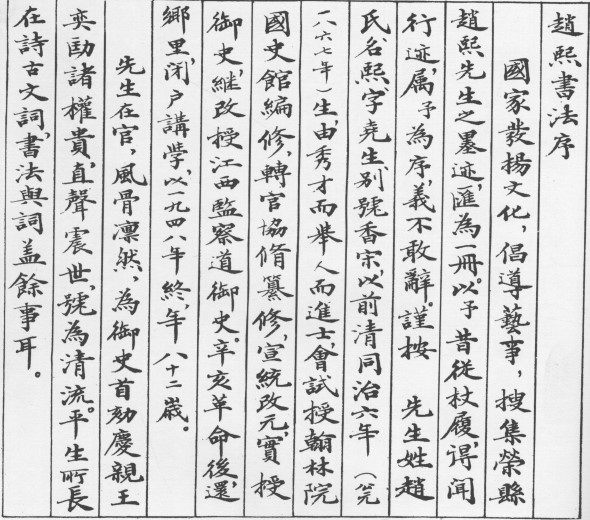 趙熙書法序
國家發揚文化，倡導藝事，搜集榮縣
趙熙先生之墨迹，匯為一冊。以予昔從杖履，得聞
行迹，属予為序，義不敢辭。謹按　先生姓趙
氏名熙，字堯生，别號香宋，以前清同治六年（公元
一八六七年）生，由秀才而舉人而進士，會試授翰林院
國史館編修，轉官協脩纂修，宣統改元，實授
御史，継改授江西監察道御史。辛亥革命後，還
鄉里，闭户講學，以一九四八年終，年八十二歲。
先生在官，風骨凛然，為御史首劾慶親王
奕劻諸權貴，直聲震世，號為清流。平生所長
在詩古文詞，書法與詞盖餘事耳。